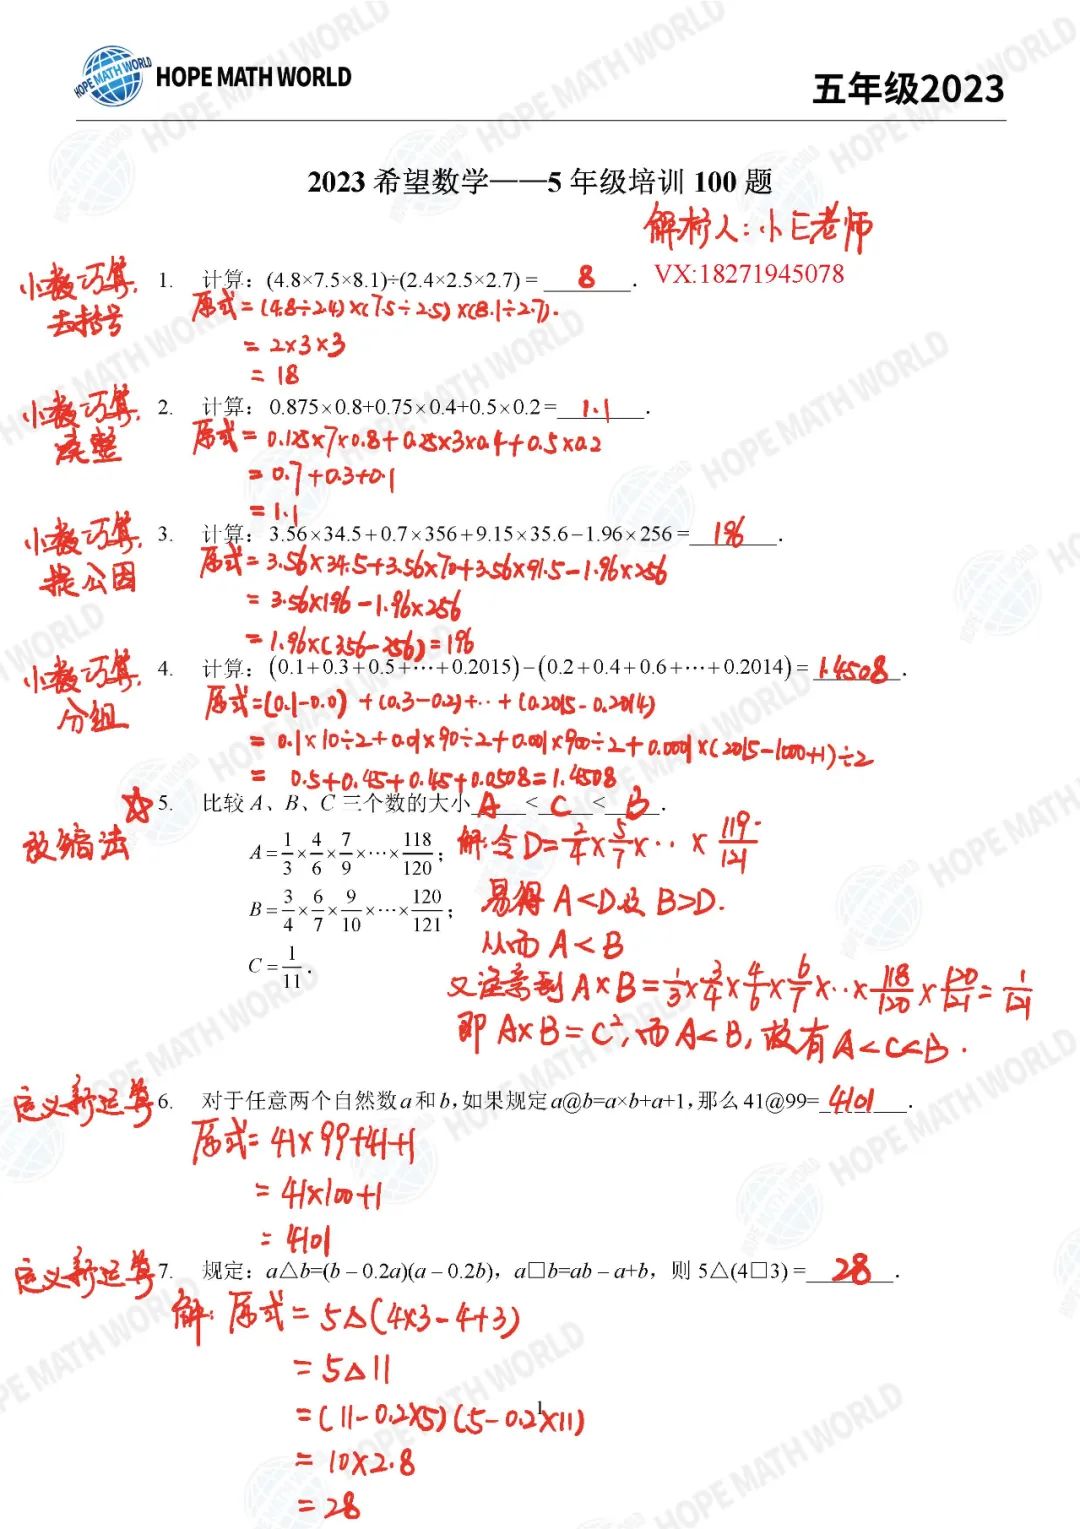 HOPE MATH WORLD
五年级2023
2023 希望数学——5 年级培训 100 题
解析人:小E老师
小数巧算,
去括号
1. 计算:(4.8×7.5×8.1)÷(2.4×2.5×2.7) = 8 . VX:18271945078
原式=(4.8÷2.4)×(7.5÷2.5)×(8.1÷2.7).
= 2×3×3
= 18
小数巧算,
凑整
2. 计算: 0.875×0.8+0.75×0.4+0.5×0.2 = 1.1 .
原式= 0.125×7×0.8+0.25×3×0.4+0.5×0.2
= 0.7+0.3+0.1
= 1.1
小数巧算,
提公因
3. 计算: 3.56×34.5+0.7×356+9.15×35.6−1.96×256 = 196 .
原式= 3.56×34.5+3.56×70+3.56×91.5−1.96×256
= 3.56×196−1.96×256
= 1.96×(356−256)=196
小数巧算,
分组
4. 计算: (0.1+0.3+0.5+⋯+0.2015)−(0.2+0.4+0.6+⋯+0.2014) = 1.4508 .
原式=(0.1-0.0)+(0.3-0.2)+··+(0.2015-0.2014)
= 0.1×10÷2+0.01×90÷2+0.001×900÷2+0.0001×(2015-1000+1)÷2
= 0.5+0.45+0.45+0.0508=1.4508
☆5. 比较 A、B、C 三个数的大小 A < C < B .
放缩法
A = 1/3 × 4/6 × 7/9 ×⋯× 118/120 ;
解:令D= 2/4 × 5/7 ×··× 119/121.
B = 3/4 × 6/7 × 9/10 ×⋯× 120/121 ;
易得 A<D及 B>D.
从而 A<B
C = 1/11 .
又注意到 A×B= 1/3 × 3/4 × 4/6 × 6/7 ×··× 118/120 × 120/121 = 1/121
即 A×B=C², 而 A<B, 故有 A<C<B .
定义新运算
6. 对于任意两个自然数 a 和 b,如果规定 a@b=a×b+a+1,那么 41@99= 4101 .
原式= 41×99+41+1
= 41×100+1
= 4101
定义新运算
7. 规定: a△b=(b − 0.2a)(a − 0.2b), a□b=ab − a+b, 则 5△(4□3) = 28 .
解: 原式= 5△(4×3-4+3)
= 5△11
= (11-0.2×5)(5-0.2×11)
1
= 10×2.8
= 28